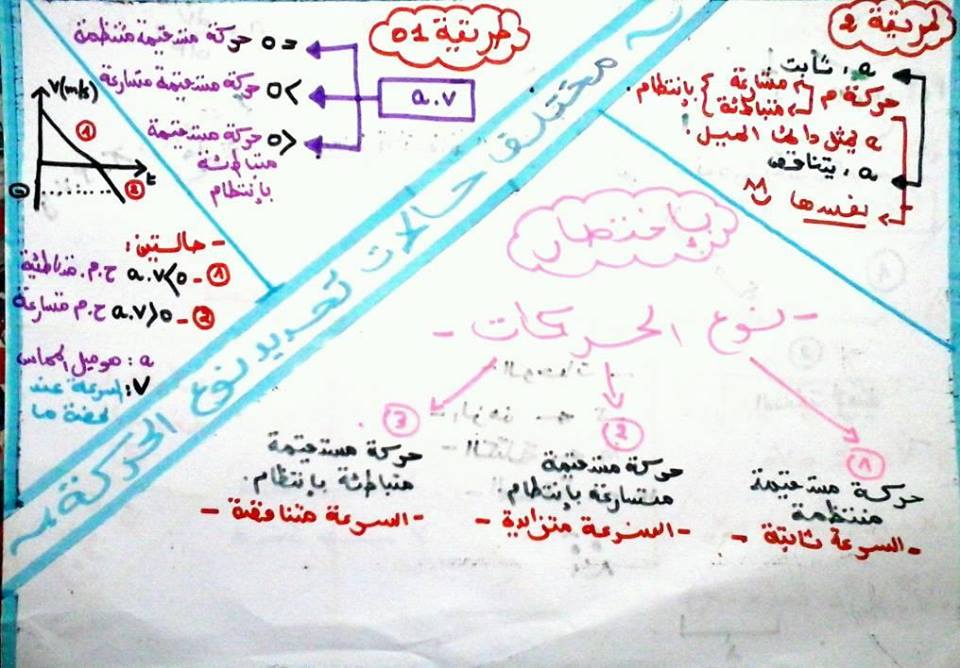 ~ مختلف حالات تحديد نوع الحركة ~
طريقة 01
a.v
= 0 حركة مستقيمة منتظمة
0< حركة مستقيمة متسارعة
0> حركة مستقيمة
متباطئة
بإنتظام
V(m/s)
t
1
2
- حالتين:
1 - a.v<0 ح.م. متباطئية
2 - a.v>0 ح.م متسارعة
a : هو ميل المماس
V : السرعة عند
لحضة ما
طريقة 2
a : ثابت!
حركة م { متسارعة
متباطئة } بإنتظام.
a يمثل دائما الميل!
a : يتناقص
نفسها
باختصار
- نوع الحركات -
1
حركة مستقيمة
منتظمة
- السرعة ثابتة -
2
حركة مستقيمة
متسارعة بإنتظام.
- السرعة متزايدة -
3
حركة مستقيمة
متباطئة بإنتظام.
- السرعة متناقصة -